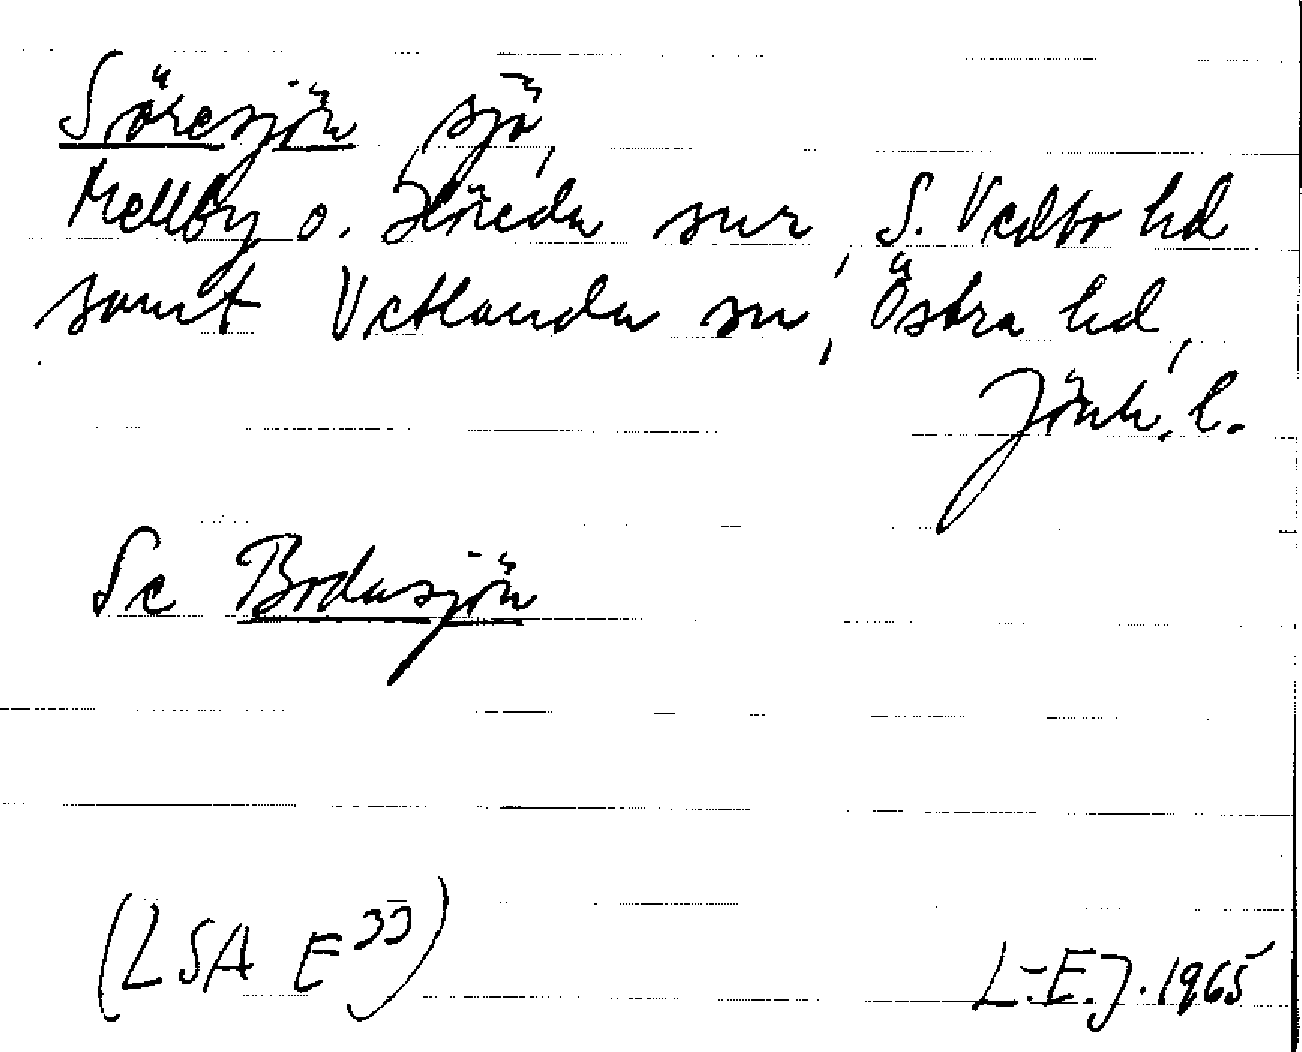 Söresjön sjö,
Mellby o. Skirö snr, S. Vedbo hd
samt Vetlanda sn, Östra hd,
Jönk. l.
Se Bodasjön
(LSA E 33)
L-E.J. 1965